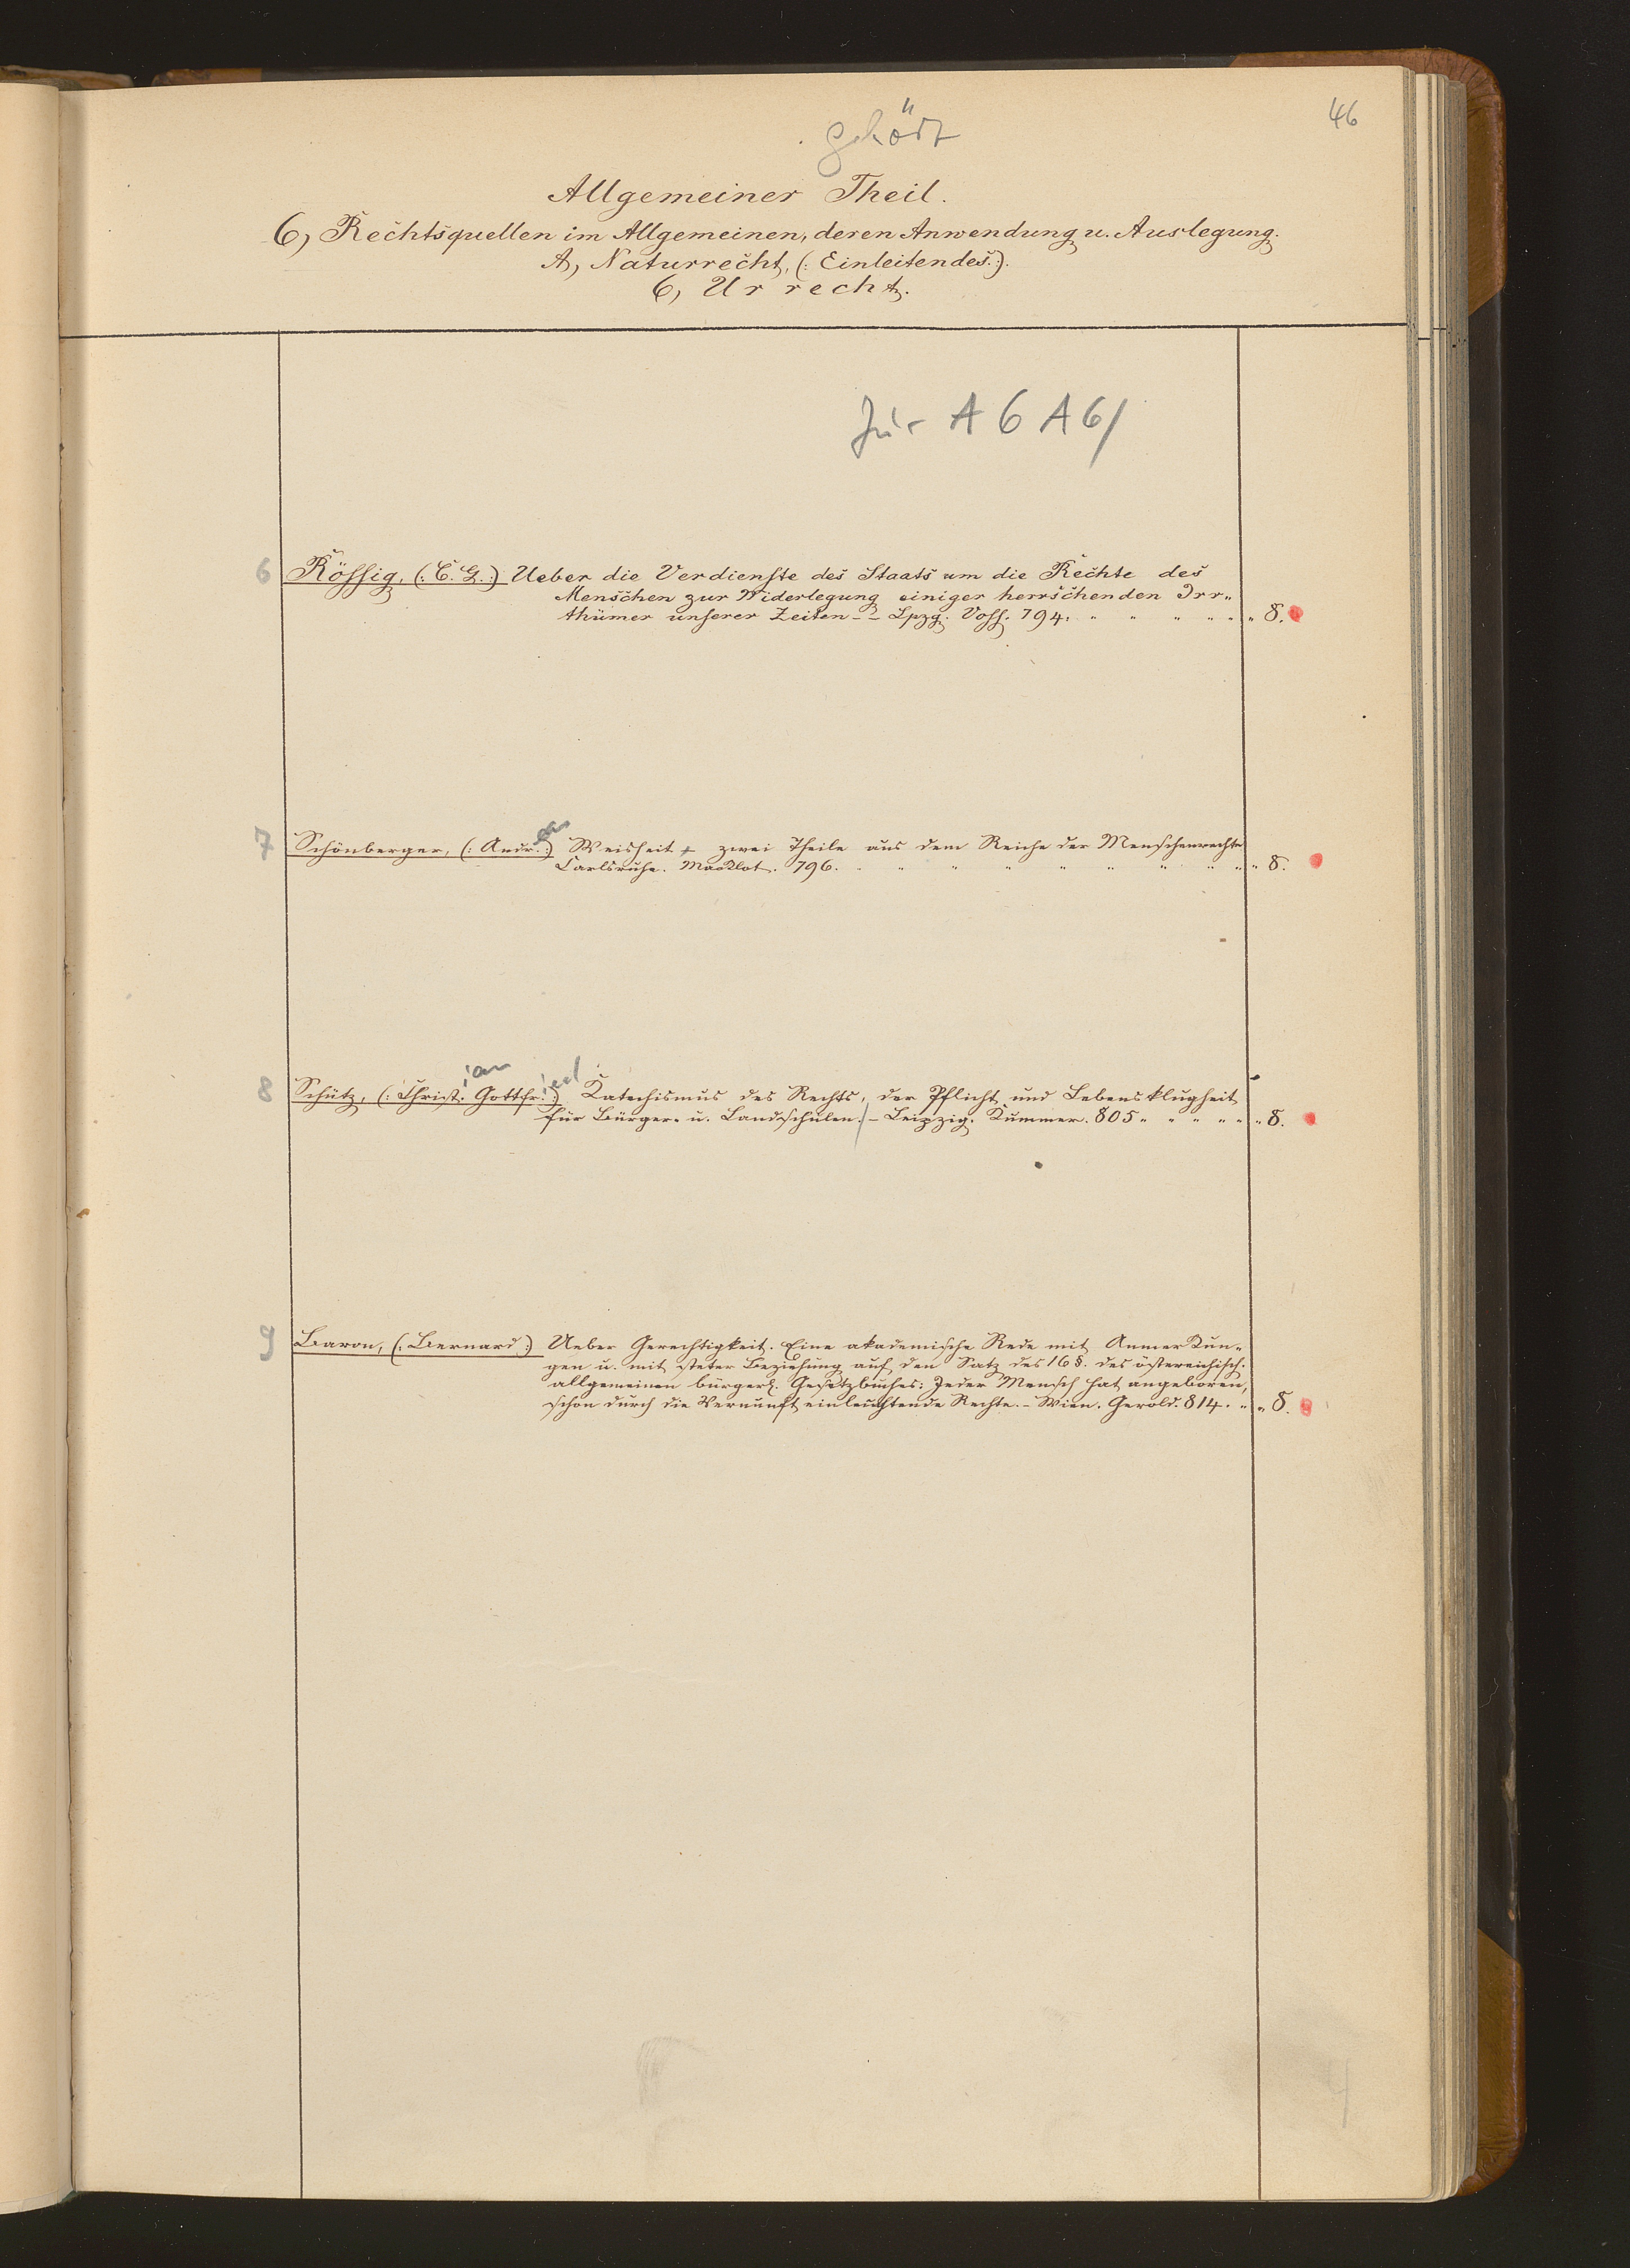 46
gehört
Allgemeiner Theil.
6, Rechtsquellen im Allgemeinen, deren Anwendung u. Auslegung.
A, Naturrecht, (: Einleitendes :).
6, Urrecht.
Für A 6 A 6/
6 Rössig, (: C. G. :) Ueber die Verdienste des Staats um die Rechte des
Menschen zur Widerlegung einiger herrschenden Irr„
thümer unserer Zeiten -- Lpzg. Voss. 794. " " " " " " 8.
7 Schönberger, (: Andr. :) Weisheit + zwei Theile aus dem Reiche der Menschenrechte
Carlsruhe. Macklot. 796. " " " " " " " " " 8.
ian ied
8 Schütz, (: Christ. Gottfr. :) Katechismus des Rechts, der Pflicht und Lebensklugheit
für Bürger- u. Landschulen. / - Leipzig. Kummer. 805 " " " " " " 8.
9 Baron, (: Bernard :) Ueber Gerechtigkeit. Eine akademische Rede mit Anmerkun„
gen u. mit steter Beziehung auf den Satz des 16 §. des östereichisch.
allgemeinen bürgerl. Gesetzbuches: Jeder Mensch hat angeboren,
schon durch die Vernunft einleuchtende Rechte. - Wien. Gerold. 814. " " 8.